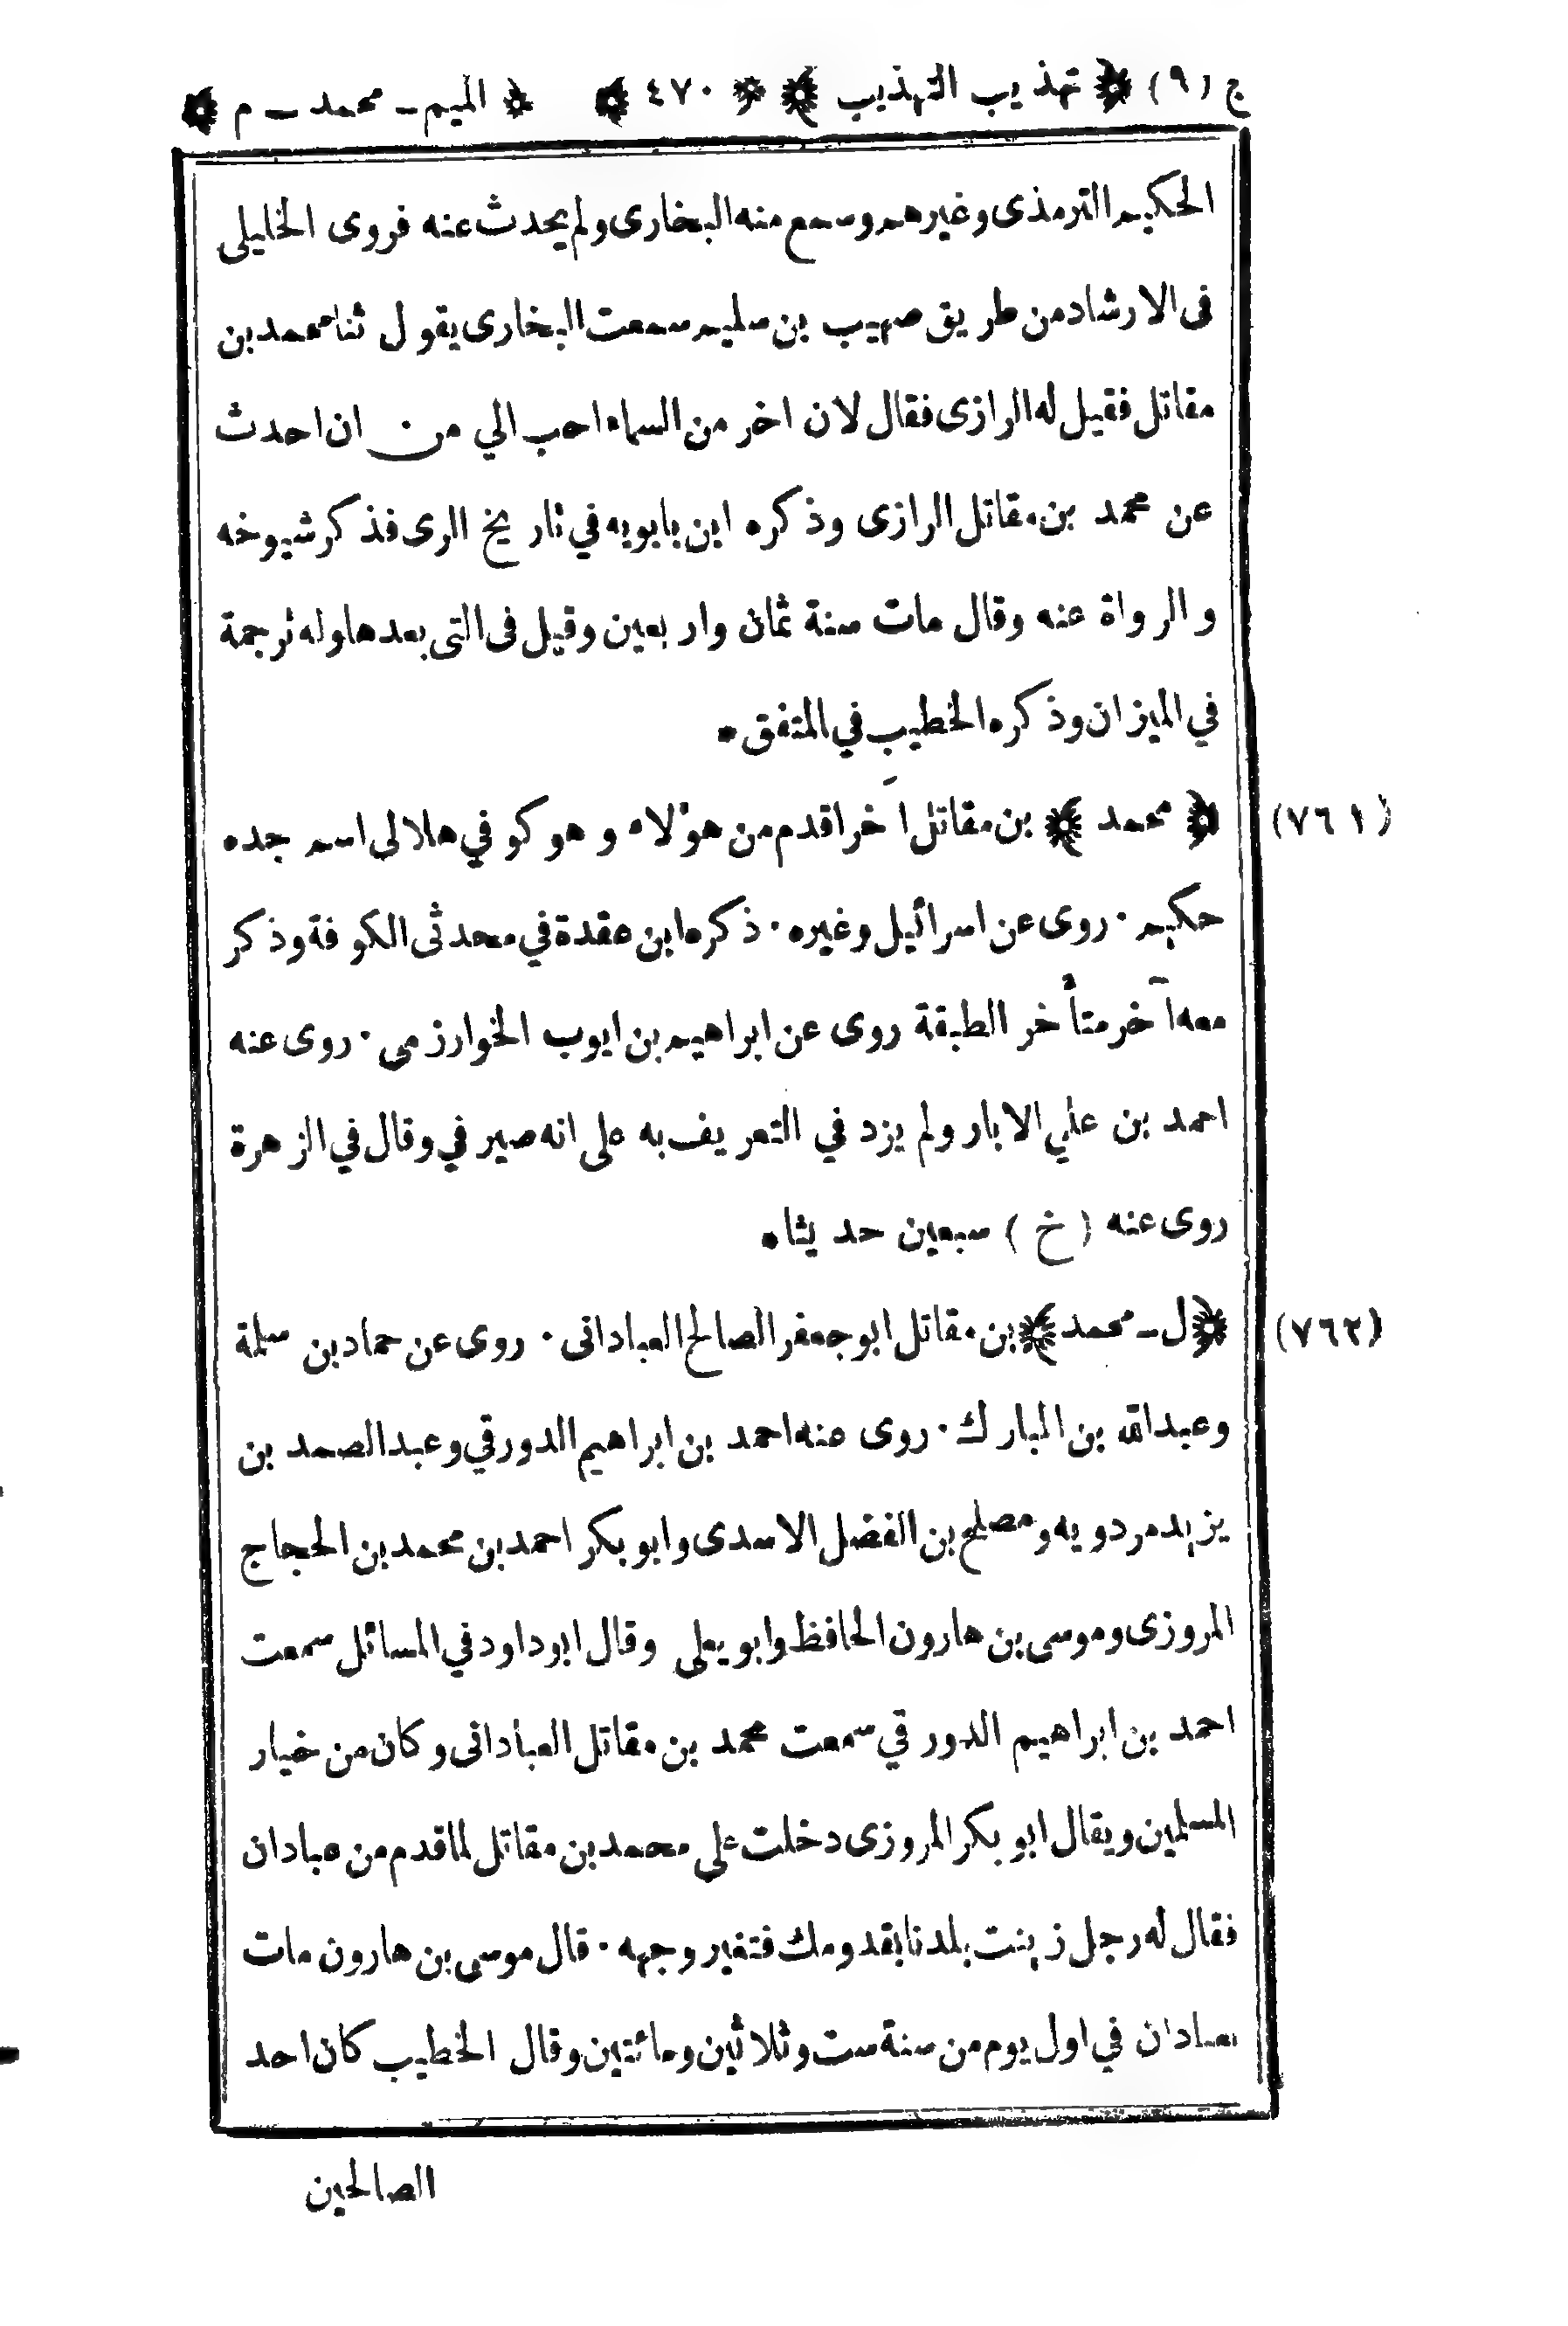 ج (٩) ﴿ تهذيب التهذيب ﴾ ﴿ ٤٧٠ ﴾ ﴿ الميم - محمد - م ﴾
الحكيم الترمذى وغيرهم وسمع منه البخارى ولم يحدث عنه فروى الخليلى
فى الارشاد من طريق صهيب بن سليم سمعت البخارى يقول ثنا محمد بن
مقاتل فقيل له الرازى فقال لان اخر من السماء احب الي من ان احدث
عن محمد بن مقاتل الرازى وذكره ابن بابويه في تاريخ الرى فذكر شيوخه
والرواة عنه وقال مات سنة ثمان واربعين وقيل فى التى بعدها وله ترجمة
في الميزان وذكره الخطيب في المتفق •
(٧٦١) ﴿ محمد ﴾ بن مقاتل آخر اقدم من هؤلاء وهو كوفي هلالى اسم جده
حكيم · روى عن اسرائيل وغيره · ذكره ابن عقدة في محدثى الكوفة وذكر
معه آخر متأخر الطبقة روى عن ابراهيم بن ايوب الخوارزمى · روى عنه
احمد بن علي الابار ولم يزد في التعريف به على انه صيرفي وقال في الزهرة
روى عنه ( خ ) سبعين حديثا •
(٧٦٢) ﴿ ل - محمد ﴾ بن مقاتل ابو جعفر الصالح العبادانى · روى عن حماد بن سلمة
وعبدالله بن المبارك · روى عنه احمد بن ابراهيم الدورقي وعبد الصمد بن
يزيد مردويه ومصلح بن الفضل الاسدى وابو بكر احمد بن محمد بن الحجاج
المروزى وموسى بن هارون الحافظ وابو يعلى وقال ابو داود في المسائل سمعت
احمد بن ابراهيم الدورقي سمعت محمد بن مقاتل العبادانى وكان من خيار
المسلمين ويقال ابو بكر المروزى دخلت على محمد بن مقاتل لما قدم من عبادان
فقال له رجل زينت بلدنا بقدومك فتغير وجهه · قال موسى بن هارون مات
بعبادان في اول يوم من سنة ست وثلاثين ومائتين وقال الخطيب كان احد
الصالحين